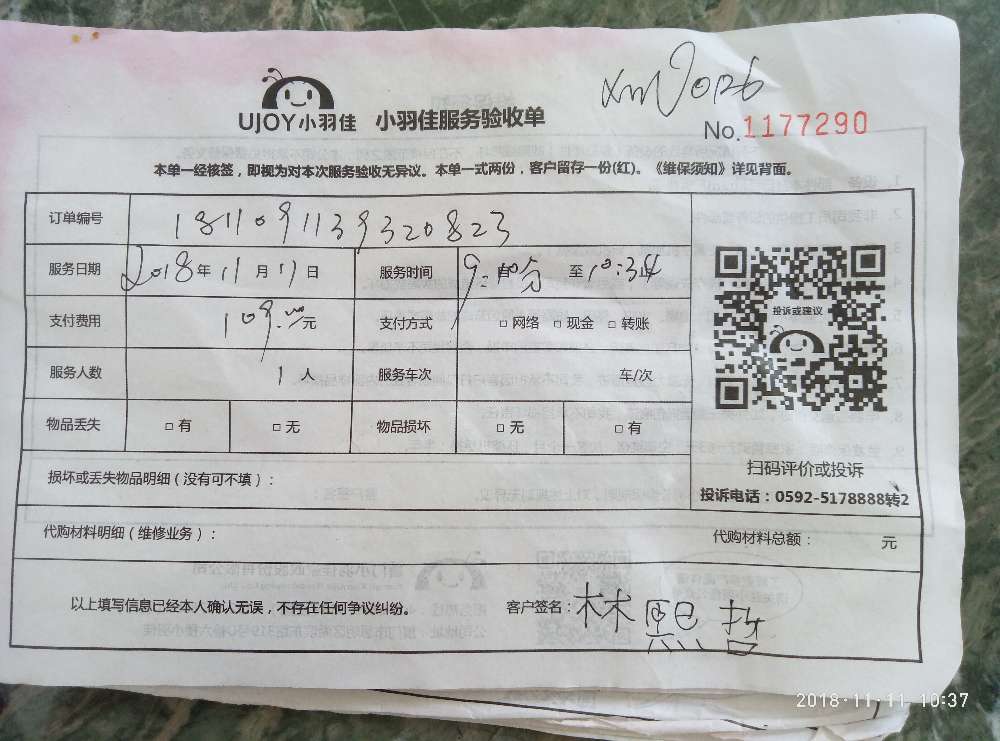 xm J026
UJOY小羽佳 小羽佳服务验收单
No.1177290
本单一经核签，即视为对本次服务验收无异议。本单一式两份，客户留存一份(红)。《维保须知》详见背面。
订单编号 1811091139320823
服务日期 2018年11月11日 服务时间 9:00分 至10:34止
支付费用 109.00元 支付方式 □网络 □现金 □转账
投诉或建议
服务人数 1人 服务车次 车/次
物品丢失 □有 □无 物品损坏 □无 □有
扫码评价或投诉
损坏或丢失物品明细（没有可不填）：
投诉电话：0592-5178888转2
代购材料明细（维修业务）： 代购材料总额： 元
以上填写信息已经本人确认无误，不存在任何争议纠纷。 客户签名：林熙哲
2018-11-11 10:37